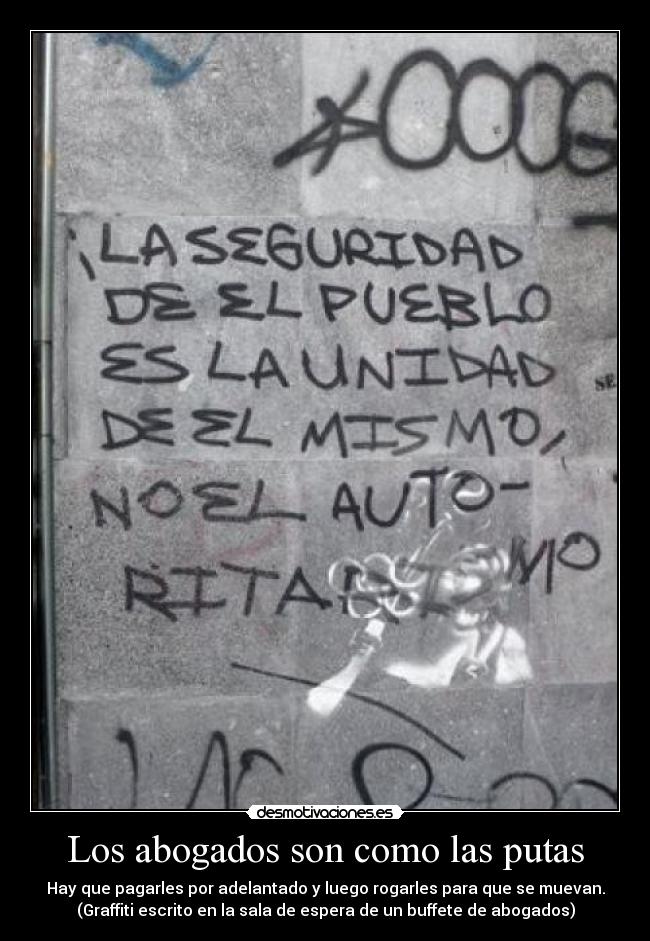 OOOG
¡LA SEGURIDAD
DE EL PUEBLO
ES LA UNIDAD
DE EL MISMO,
NO EL AUTO-
RITARISMO
desmotivaciones.es
Los abogados son como las putas
Hay que pagarles por adelantado y luego rogarles para que se muevan.
(Graffiti escrito en la sala de espera de un buffete de abogados)